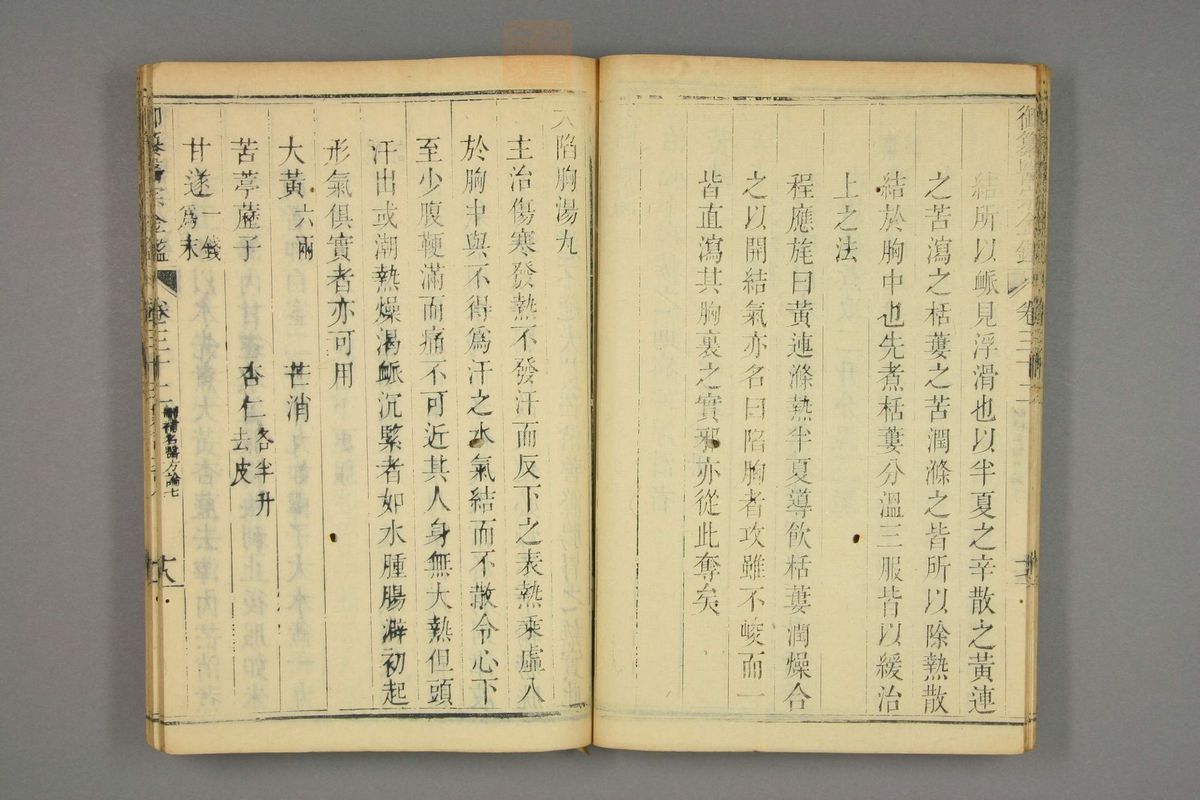 結所以脈見浮滑也以半夏之辛散之黃連
之苦瀉之栝蔞之苦潤滌之皆所以除熱散
結於胸中也先煮栝蔞分溫三服皆以緩治
上之法
程應旄曰黃連滌熱半夏導飲栝蔞潤燥合
之以開結氣亦名曰陷胸者攻雖不峻而一
皆直瀉其胸裏之實邪亦從此奪矣
大陷胸湯丸
主治傷寒發熱不發汗而反下之表熱乘虛入
於胸中與不得爲汗之水氣結而不散令心下
至少腹鞕滿而痛不可近其人身無大熱但頭
汗出或潮熱燥渴脈沉緊者如水腫腸澼初起
形氣俱實者亦可用
大黃六兩 芒消
苦葶藶子 杏仁去皮各半升
甘遂一錢爲末
御纂醫宗金鑑 卷三十 刪補名醫方論七 十八